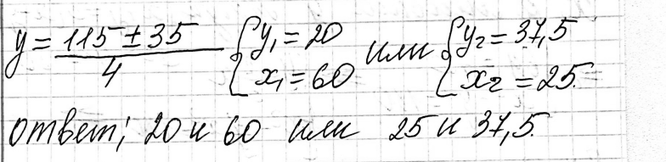 y = 115 ± 35 / 4 { y₁ = 20 x₁ = 60 или { y₂ = 37,5 x₂ = 25.
ответ; 20 и 60 или 25 и 37,5.